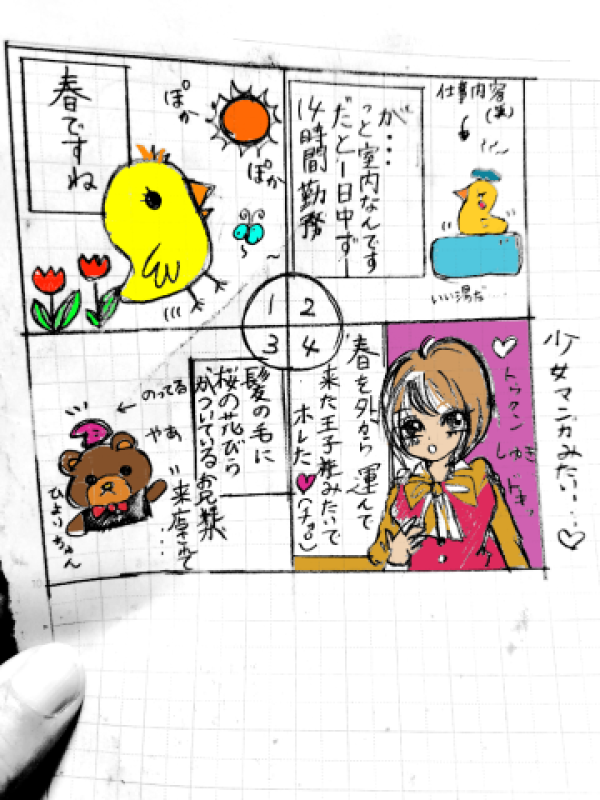 春ですね
ぽか
ぽか
1
仕事内容
(笑)
が…
っと室内なんです
だと1日中ず〜
14時間勤務
いい湯だ…
2
髪の毛に
桜の花びら
がついているお兄様
来店されて
…
のってる
やあ
ひよりちゃん
3
春を外から運んで
来た王子様みたいで
ホレた♥
トゥクン
4
少女マンガみたい…♡